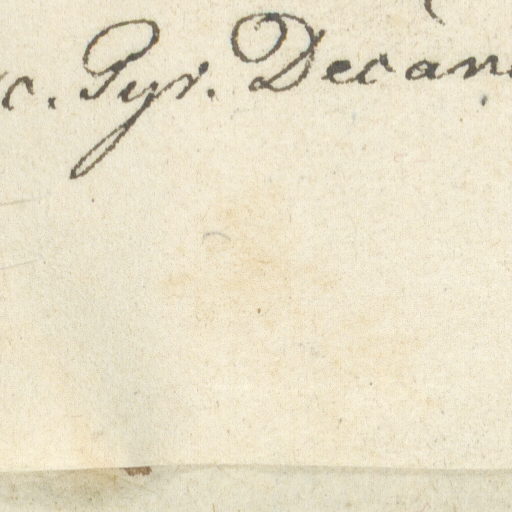 c. Pyr. Decan